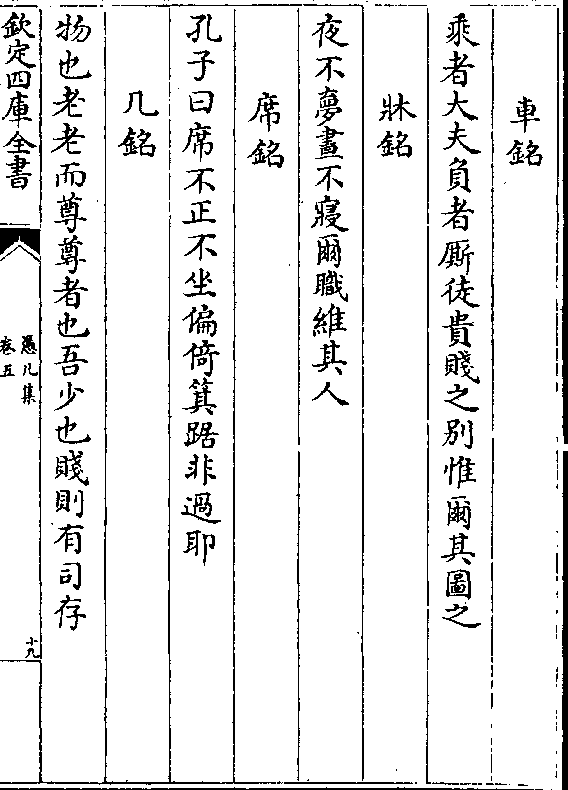 車銘
乘者大夫負者厮徒貴賤之别惟爾其圖之
牀銘
夜不夢晝不寢爾職維其人
席銘
孔子曰席不正不坐偏倚箕踞非過耶
几銘
物也老老而尊尊者也吾少也賤則有司存
欽定四庫全書
慿几集
卷五
十九